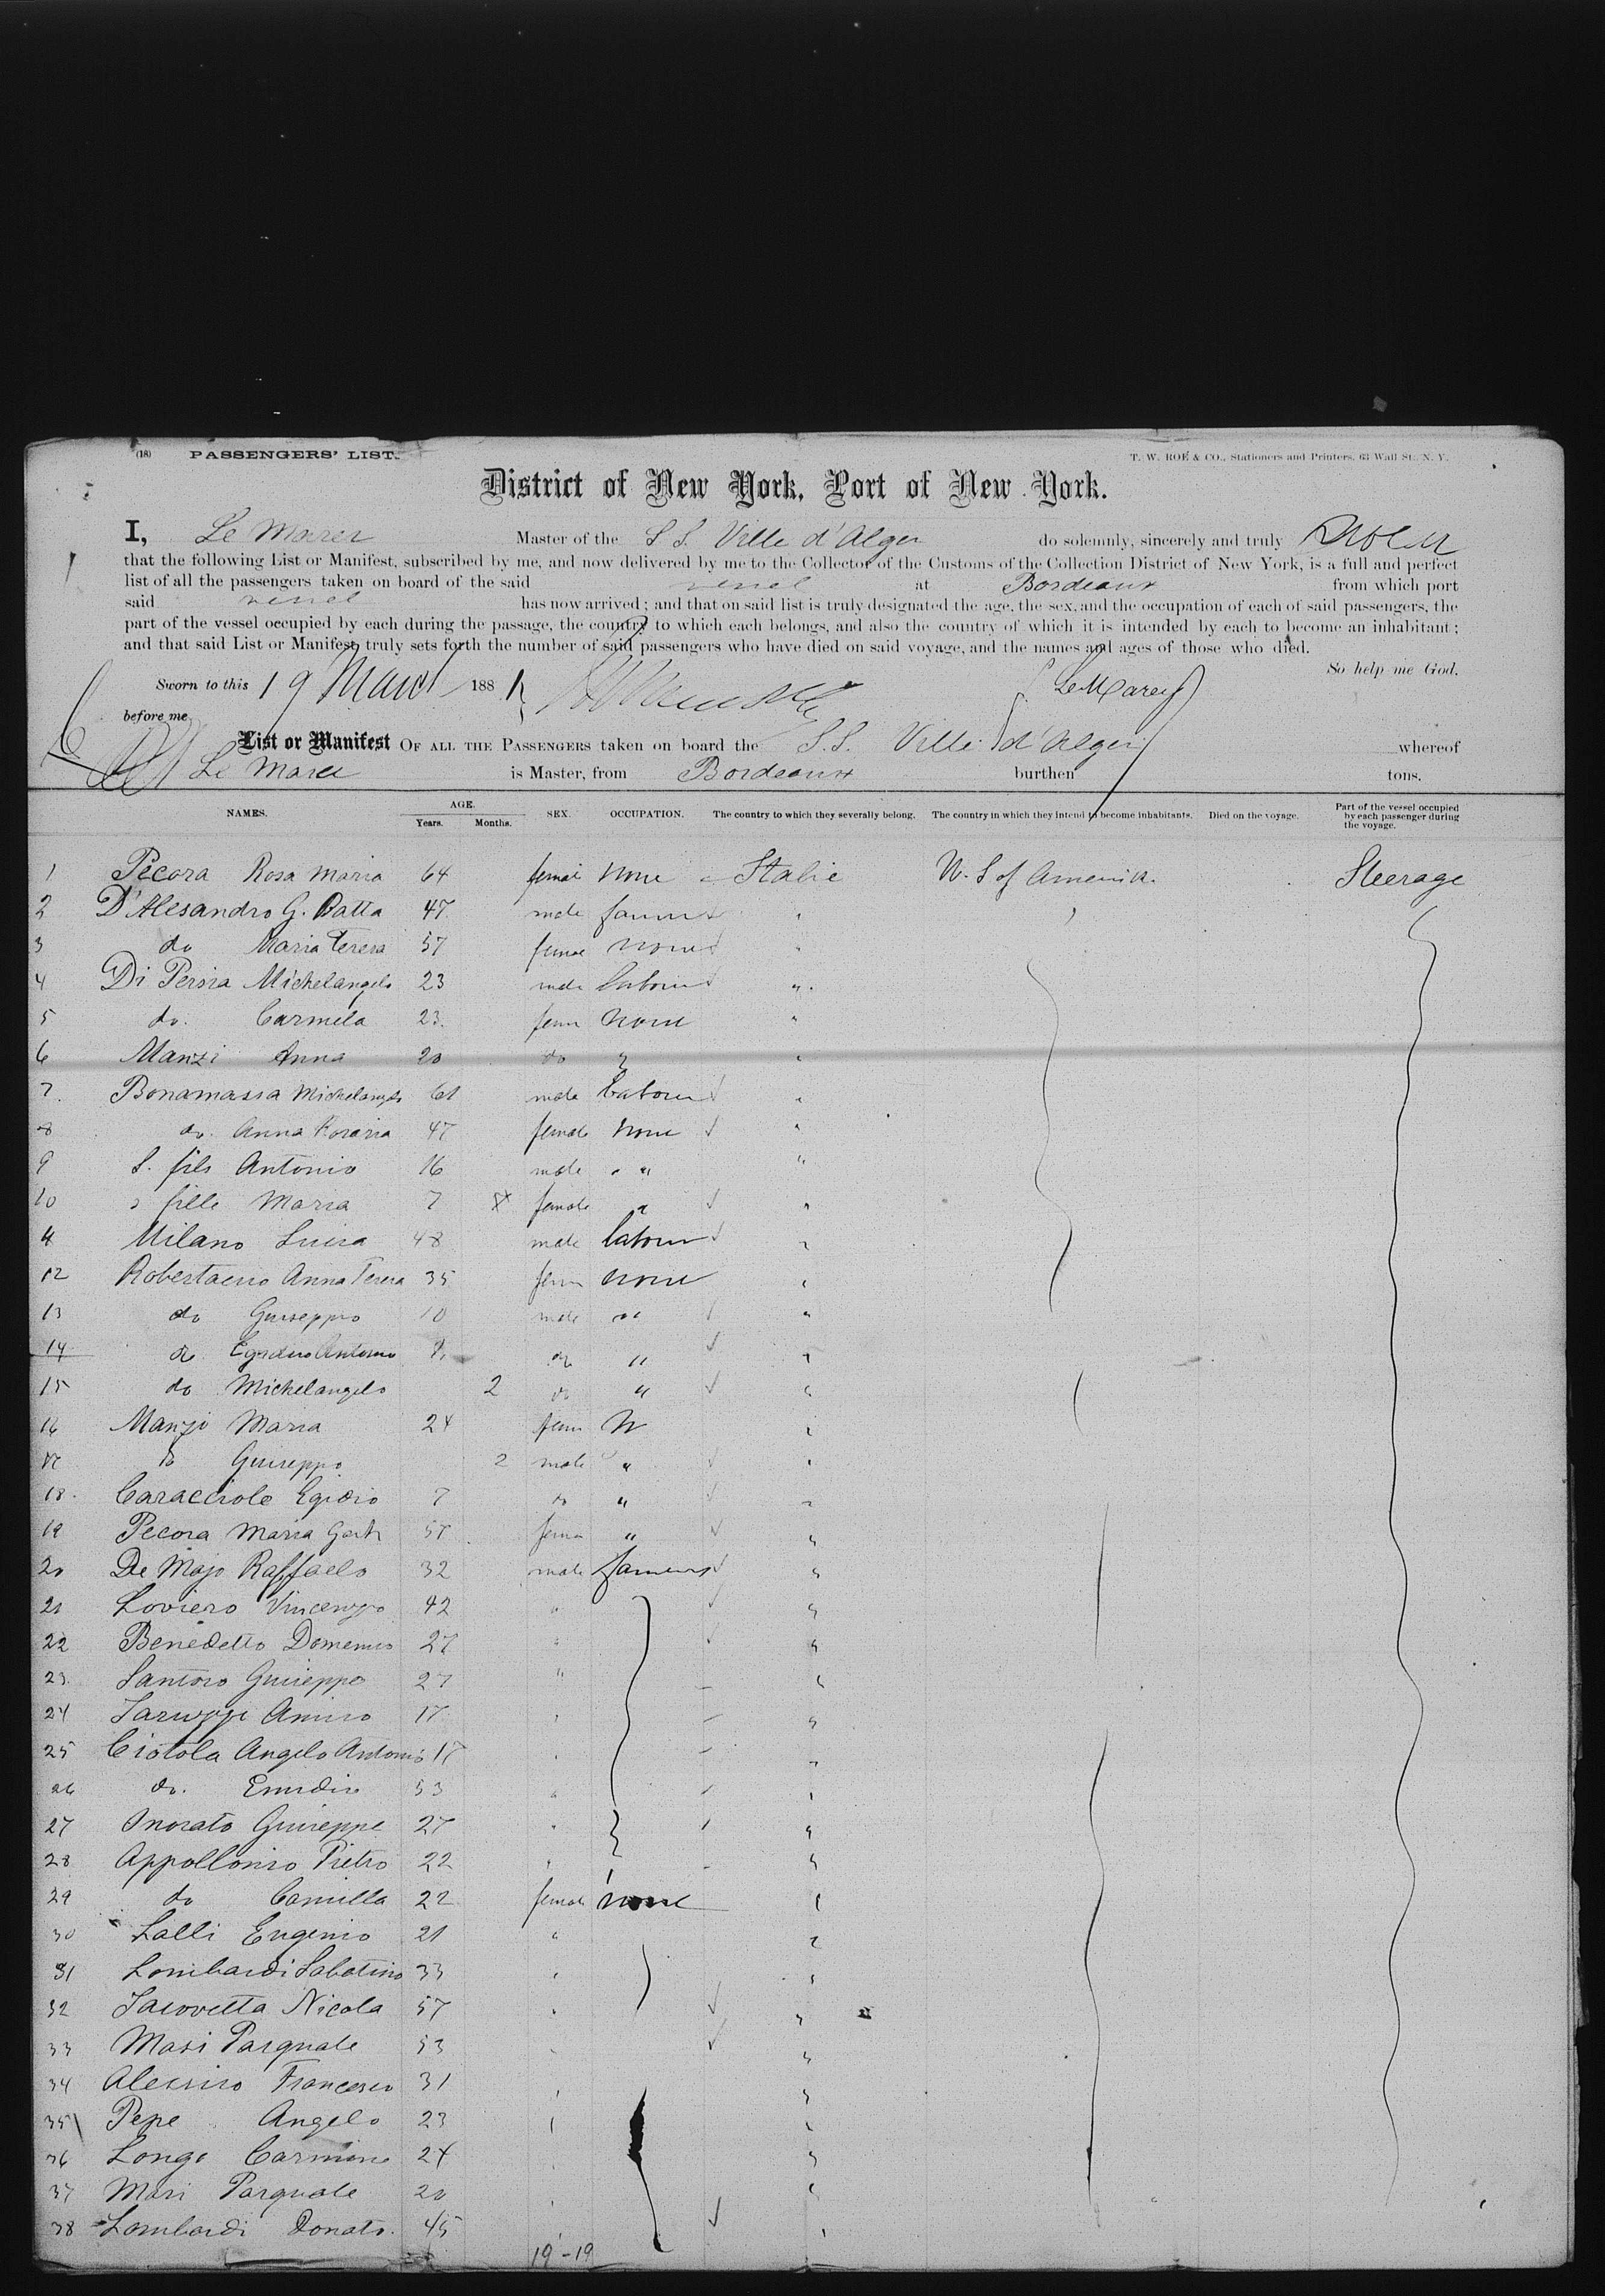 (18) PASSENGERS' LIST. T. W. ROE & CO., Stationers and Printers, 63 Wall St., N. Y.
District of New York, Port of New York.
I, Le Marer Master of the S S. Ville d'Alger do solemnly, sincerely and truly
that the following List or Manifest, subscribed by me, and now delivered by me to the Collector of the Customs of the Collection District of New York, is a full and perfect
list of all the passengers taken on board of the said vessel at Bordeaux from which port
said vessel has now arrived; and that on said list is truly designated the age, the sex, and the occupation of each of said passengers, the
part of the vessel occupied by each during the passage, the country to which each belongs, and also the country of which it is intended by each to become an inhabitant;
and that said List or Manifest truly sets forth the number of said passengers who have died on said voyage, and the names and ages of those who died.
So help me God.
Sworn to this 19 March 188 Le Marer
before me
List or Manifest OF ALL THE PASSENGERS taken on board the S.S. Ville d'Alger whereof
Le Marer is Master, from Bordeaux burthen tons.
NAMES. AGE. Years. Months. SEX. OCCUPATION. The country to which they severally belong. The country in which they intend to become inhabitants. Died on the voyage. Part of the vessel occupied by each passenger during the voyage.
1 Pecora Rosa Maria 64 femal none Italie U. S of America. Steerage
2 D'Alesandro G. Batta 47 male farmer "
3 do Maria Teresa 57 femal none "
4 Di Persia Michelangelo 23 male labour "
5 do. Carmela 23. fem none "
6 Manzi Anna 20 do " "
7. Bonamassa Michelangelo 61 male labour "
8 do. Anna Rosaria 47 female none "
9 S. fils Antonio 16 male " "
10 " fille Maria 7 female " "
11 Milano Luisa 48 male labour "
12 Anna Teresa 35 fem none "
13 do Giuseppe 10 male " "
14 do Antonio do " "
15 do Michelangelo 2 do " "
16 Manzi Maria 24 fem N "
17 do Giuseppe 2 male " "
18. Caracciolo Egidio 7 do " "
19 Pecora Maria 57 fema " "
20 De Majo Raffaelo 32 male farmers "
21 Loviero Vincenzo 42 " "
22 Benedetto Domenico 27 " "
23. Santoro Giuseppe 27 " "
24 Amico 17 " "
25 Ciotola Angelo Antonio 17 " "
26 do. Emidio 53 " "
27 Onorato Giuseppe 27 " "
28 Appollonio Pietro 22 " "
29 do Camilla 22 female none "
30 Lalli Eugenio 21 " "
31 Lombardi Sabatino 33 " "
32 Iacovetta Nicola 57 " "
33 Masi Pasquale 53 " "
34 Alessio Francesco 31 " "
35 Pepe Angelo 23 " "
36 Longo Carmine 24 " "
37 Masi Pasquale 20 " "
38 Lombardi Donato. 45 " "
19-19